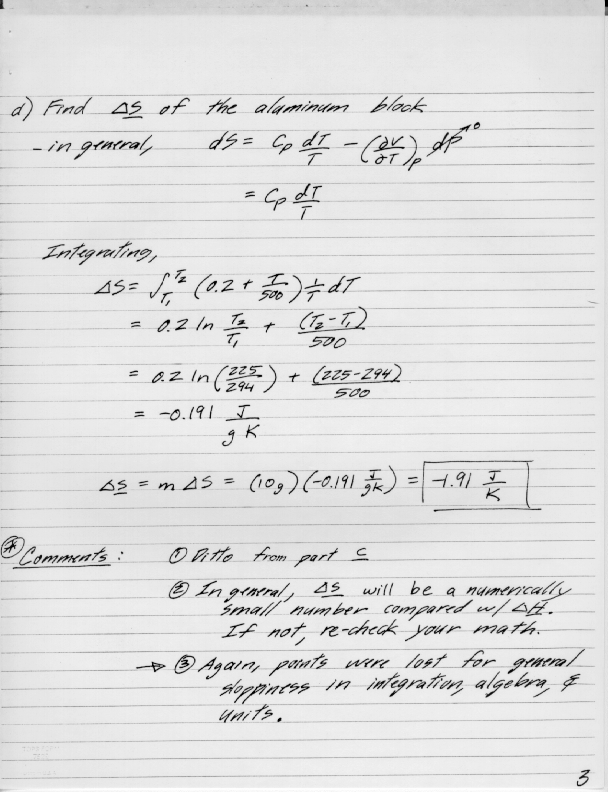 d) Find ΔS of the aluminum block
- in general, dS = Cp dT/T - (∂V/∂T)p dP→0
= Cp dT/T
Integrating,
ΔS = ∫T1^T2 (0.2 + T/500) 1/T dT
= 0.2 ln T2/T1 + (T2-T1)/500
= 0.2 ln (225/294) + (225-294)/500
= -0.191 J/g K
ΔS = m ΔS = (10g)(-0.191 J/gK) = -1.91 J/K
* Comments: ① Ditto from part c
② In general, ΔS will be a numerically
small number compared w/ ΔH.
If not, re-check your math.
→ ③ Again, points were lost for general
sloppiness in integration, algebra, &
units.
3